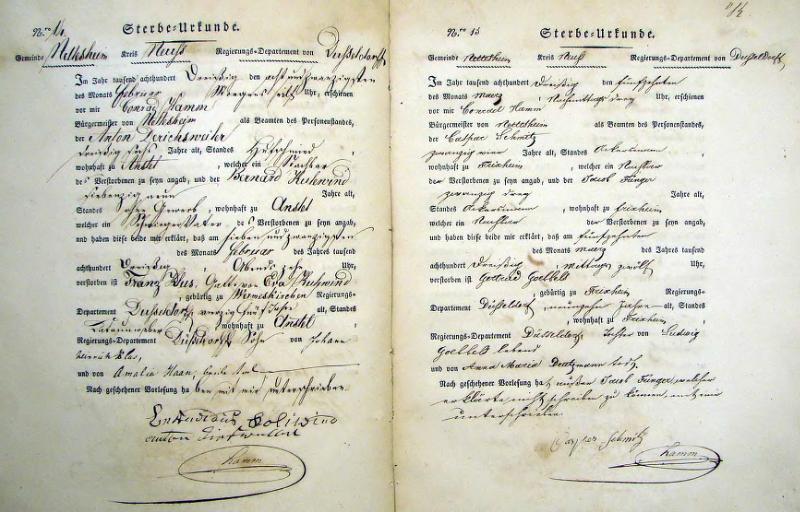 Nro. 14 Sterbe-Urkunde.
Gemeinde Nettesheim Kreis Neuß Regierungs-Departement von Düsseldorff
Im Jahr tausend achthundert Dreißig, den acht und zwanzigsten
des Monats Februar Morgens Uhr, erschienen
vor mir Conrad Hamm
Bürgermeister von Nettesheim als Beamten des Personenstandes,
der Anton Derichsweiler
Dreißig sechs Jahre alt, Standes Hufschmied
wohnhaft zu Anstel , welcher ein Nachbar
des Verstorbenen zu seyn angab, und der Bernard Kuhwind
siebenzig neun Jahre alt,
Standes ohne Gewerb , wohnhaft zu Anstel
welcher ein Schwiegervater des Verstorbenen zu seyn angab,
und haben diese beide mir erklärt, daß am sieben und zwanzigsten
des Monats Februar des Jahres tausend
achthundert Dreißig, Abends zehn Uhr,
verstorben ist Franz Klus, Gatte von Eva Kuhwind
, gebürtig zu Wermelskirchen Regierungs-
Departement Düsseldorf vierzig fünf Jahre alt, Standes
wohnhaft zu Anstel
Regierungs-Departement Düsseldorf Sohn von Johann
Heinrich Klus,
und von Amalia Haan, beide
Nach geschehener Vorlesung haben mit mir unterschrieben.
Hamm
Nro. 15 Sterbe-Urkunde.
Gemeinde Nettesheim Kreis Neuß Regierungs-Departement von Düsseldorff
Im Jahr tausend achthundert Dreißig den fünfzehnten
des Monats Maerz Nachmittags drey Uhr, erschienen
vor mir Conrad Hamm
Bürgermeister von Nettesheim als Beamten des Personenstandes,
der Caspar Schmitz
zwanzig vier Jahre alt, Standes Ackersmann
wohnhaft zu Frixheim , welcher ein Nachbar
der Verstorbenen zu seyn angab, und der Jacob Jünger
zwanzig drey Jahre alt,
Standes Ackersmann , wohnhaft zu Frixheim
welcher ein Nachbar der Verstorbenen zu seyn angab,
und haben diese beide mir erklärt, daß am fünfzehnten
des Monats Maerz des Jahres tausend
achthundert Dreißig, Mittags zwölf Uhr,
verstorben ist Goebbels
, gebürtig zu Frixheim Regierungs-
Departement Düsseldorf, Jahre alt, Standes
wohnhaft zu Frixheim
Regierungs-Departement Düsseldorf, Tochter von Ludwig
Goebbels lebend
und von Anna Maria todt.
Nach geschehener Vorlesung hat außer Jacob Jünger, welcher
erklärte nicht schreiben zu können, mit mir
unterschrieben
Caspar Schmitz
Hamm